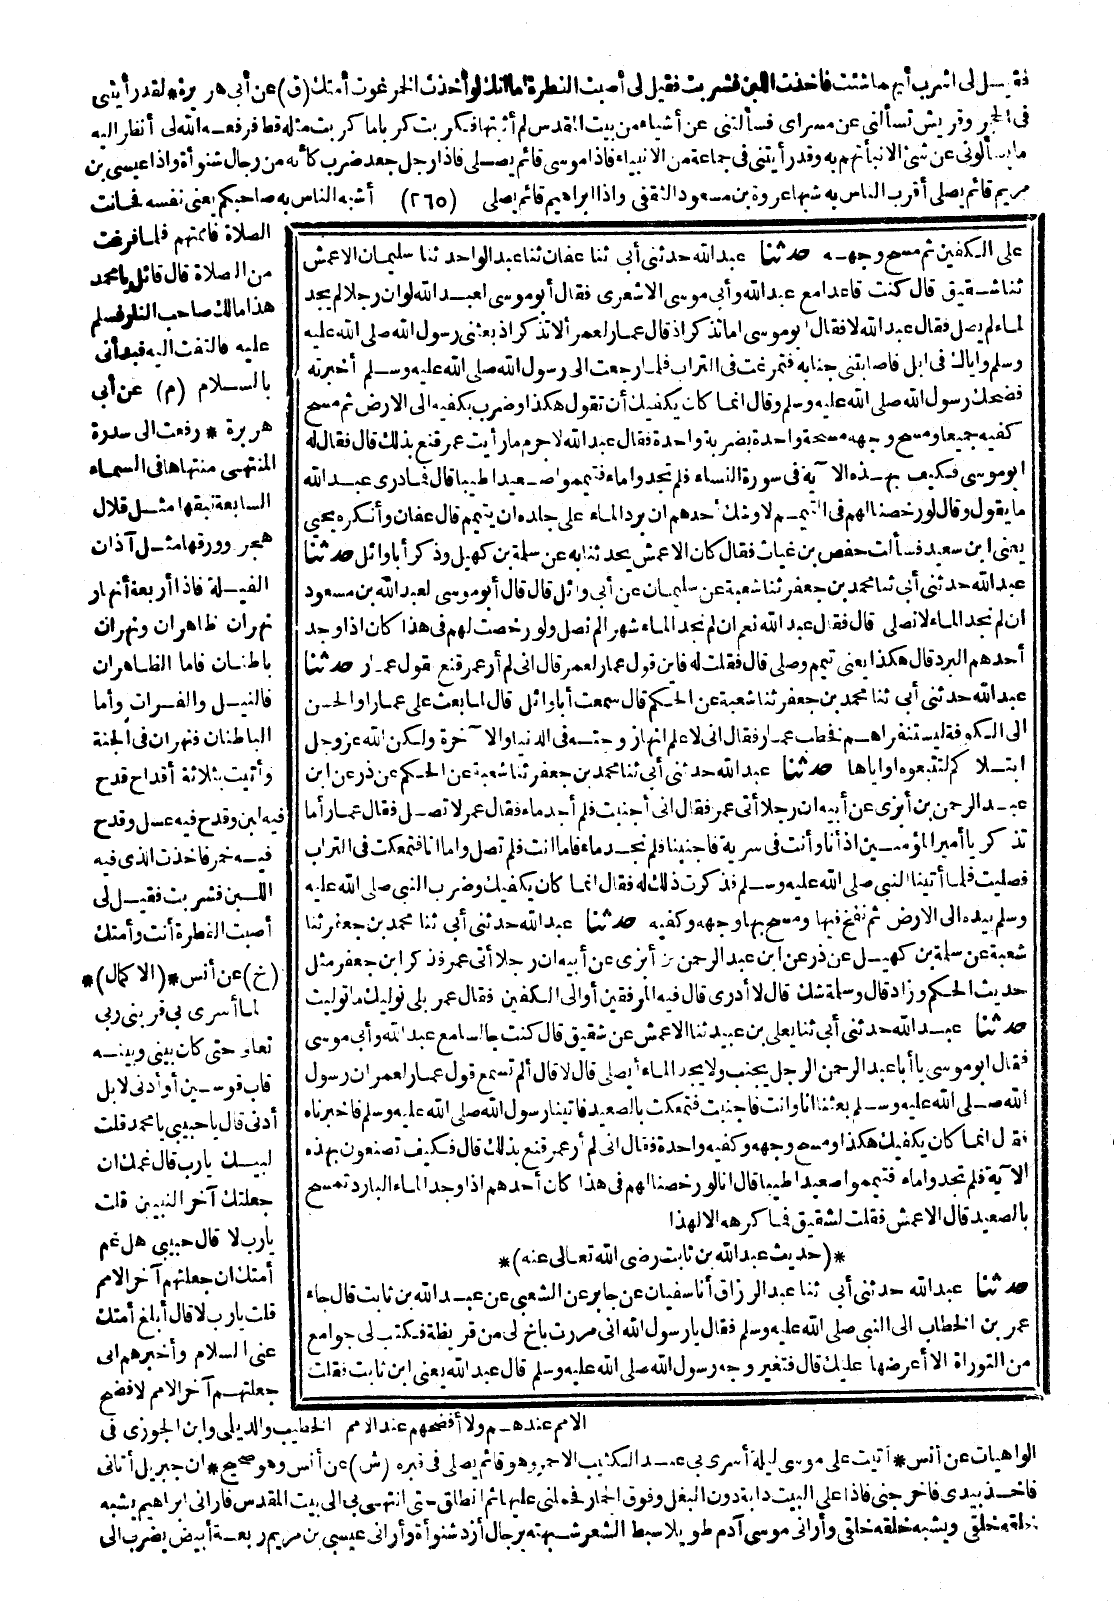 فقيل لى اشرب أيهما شئت فأخذت اللبن فشربت فقيل لى أصبت الفطرة أما انك لو أخذت الخمر غوت أمتك (ق) عن أبى هريرة * لقد رأيتنى
فى الحجر وقريش تسألنى عن مسراى فسألتنى عن أشياء من بيت المقدس لم أثبتها فكربت كرباما كربت مثله قط فرفعه الله لى أنظر اليه
ما يسألونى عن شئ الا نبأتهم به وقد رأيتنى فى جماعة من الانبياء فاذا موسى قائم يصلى فاذا رجل جعد ضرب كأنه من رجال شنوأة واذا عيسى بن
مريم قائم يصلى أقرب الناس به شبها عروة بن مسعود الثقفى واذا ابراهيم قائم يصلى (٢٦٥) أشبه الناس به صاحبكم يعنى نفسه فحانت
الصلاة فاممتهم فلما فرغت
من الصلاة قال قائل يا محمد
هذا مالك صاحب النار فسلم
عليه فالتفت اليه فبدأنى
بالسلام (م) عن أبى
هريرة * رفعت الى سدرة
المنتهى منتهاها فى السماء
السابعة نبقها مثل قلال
هجر وورقها مثل آذان
الفيلة فاذا أربعة أنهار
نهران ظاهران ونهران
باطنان فاما الظاهران
فالنيل والفرات وأما
الباطنان فنهران فى الجنة
وأتيت بثلاثة أقداح قدح
فيه لبن وقدح فيه عسل وقدح
فيه خمر فأخذت الذى فيه
اللبن فشربت فقيل لى
أصبت الفطرة أنت وأمتك
(خ) عن أنس * (الاكمال) *
لما أسرى بى قربنى ربى
تعالى حتى كان بينى وبينه
قاب قوسين أو أدنى لا بل
أدنى قال يا حبيبى يا محمد قلت
لبيك يارب قال غمك ان
جعلتك آخر النبيين قلت
يارب لا قال حبيبى هل غم
أمتك ان جعلتهم آخر الامم
قلت يارب لا قال أبلغ أمتك
عنى السلام وأخبرهم انى
جعلتهم آخر الامم لافضح
الامم عندهم ولا أفضحهم عند الامم الخطيب والديلى وابن الجوزى فى
الواهيات عن أنس * أتيت على موسى ليلة أسرى بى عند الكثيب الاحمر وهو قائم يصلى فى قبره (ش) عن أنس وهو صحيح * ان جبريل أتانى
فاخذ بيدى فاخرجنى فاذا على البيت دابة دون البغل وفوق الحمار فحملنى عليها ثم انطلق حتى انتهى بى الى بيت المقدس فارانى ابراهيم يشبه
خلقه خلقى ويشبه خلقه خلقى وأرانى موسى آدم طويلا سبط الشعر شبهته برجال أزد شنوأة وأرانى عيسى بن مريم ربعة أبيض يضرب الى
على الكفين ثم مسح وجهه حدثنا عبدالله حدثنى أبى ثنا عفان ثنا عبد الواحد ثنا سليمان الاعمش
ثنا شقيق قال كنت قاعدا مع عبد الله وأبى موسى الاشعرى فقال أبو موسى لعبد الله لو ان رجلا لم يجد
الماء لم يصل فقال عبد الله لا فقال أبو موسى اما تذكر اذ قال عمار لعمر ألا تذكر اذ بعثنى رسول الله صلى الله عليه
وسلم واياك فى ابل فاصابتنى جنابة فتمرغت فى التراب فلما رجعت الى رسول الله صلى الله عليه وسلم أخبرته
فضحك رسول الله صلى الله عليه وسلم وقال انما كان يكفيك أن تقول هكذا وضرب بكفيه الى الارض ثم مسح
كفيه جميعا ومسح وجهه مسحة واحدة بضربة واحدة فقال عبد الله لا جرم ما رأيت عمر قنع بذلك قال فقال له
ابو موسى فكيف بهذه الآية فى سورة النساء فلم تجدوا ماء فتيمموا صعيدا طيبا قال فما درى عبد الله
ما يقول وقال لو رخصنا لهم فى التيمم لاوشك أحدهم ان برد الماء على جلده ان يتيمم قال عفان وأنكره يحيى
يعنى ابن سعيد فسألت حفص بن غياث فقال كان الاعمش يحدثنا به عن سلمة بن كهيل وذكر أبا وائل حدثنا
عبد الله حدثنى أبى ثنا محمد بن جعفر ثنا شعبة عن سليمان عن أبى وائل قال قال أبو موسى لعبد الله بن مسعود
ان لم نجد الماء لا نصلى قال فقال عبد الله نعم ان لم نجد الماء شهرا لم نصل ولو رخصت لهم فى هذا كان اذا وجد
أحدهم البرد قال هكذا يعنى تيمم وصلى قال فقلت له فاين قول عمار لعمر قال انى لم أر عمر قنع بقول عمار حدثنا
عبد الله حدثنى أبى ثنا محمد بن جعفر ثنا شعبة عن الحكم قال سمعت أبا وائل قال لما بعث على عمارا والحسن
الى الكوفة ليستنفراهم فخطب عمار فقال انى لاعلم انها زوجته فى الدنيا والآخرة ولكن الله عز وجل
ابتلاكم لتتبعوه او اياها حدثنا عبد الله حدثنى أبى ثنا محمد بن جعفر ثنا شعبة عن الحكم عن ذر عن ابن
عبد الرحمن بن أبزى عن أبيه ان رجلا أتى عمر فقال انى أجنبت فلم أجد ماء فقال عمر لا تصل فقال عمار أما
تذكر يا أمير المؤمنين اذ أنا وأنت فى سرية فاجنبنا فلم نجد ماء فاما انت فلم تصل واما انا فتمعكت فى التراب
فصليت فلما أتينا النبى صلى الله عليه وسلم فذكرت ذلك له فقال انما كان يكفيك وضرب النبى صلى الله عليه
وسلم بيده الى الارض ثم نفخ فيها ومسح بها وجهه وكفيه حدثنا عبد الله حدثنى أبى ثنا محمد بن جعفر ثنا
شعبة عن سلمة بن كهيل عن ذر عن ابن عبد الرحمن بن أبزى عن أبيه ان رجلا أتى عمر فذكر ابن جعفر مثل
حديث الحكم وزاد قال وسلمة شك قال لا أدرى قال فيه المرفقين أو الى الكفين فقال عمر بلى نوليك ما توليت
حدثنا عبد الله حدثنى أبى ثنا يعلى بن عبيد ثنا الاعمش عن شقيق قال كنت جالسا مع عبد الله وأبى موسى
فقال ابو موسى يا أبا عبد الرحمن الرجل يجنب ولا يجد الماء أيصلى قال لا قال ألم تسمع قول عمار لعمر ان رسول
الله صلى الله عليه وسلم بعثنا انا وانت فاجنبت فتمعكت بالصعيد فاتينا رسول الله صلى الله عليه وسلم فاخبرناه
فقال انما كان يكفيك هكذا ومسح وجهه وكفيه واحدة فقال انى لم أر عمر قنع بذلك قال فكيف تصنعون بهذه
الآية فلم تجدوا ماء فتيمموا صعيدا طيبا قال انا لو رخصنا لهم فى هذا كان أحدهم اذا وجد الماء البارد تمسح
بالصعيد قال الاعمش فقلت لشقيق فما كرهه الا لهذا
* (حديث عبد الله بن ثابت رضى الله تعالى عنه) *
حدثنا عبد الله حدثنى أبى ثنا عبد الرزاق أنا سفيان عن جابر عن الشعبى عن عبد الله بن ثابت قال جاء
عمر بن الخطاب الى النبى صلى الله عليه وسلم فقال يا رسول الله انى مررت باخ لى من قريظة فكتب لى جوامع
من التوراة الا أعرضها عليك قال فتغير وجه رسول الله صلى الله عليه وسلم قال عبد الله يعنى ابن ثابت فقلت